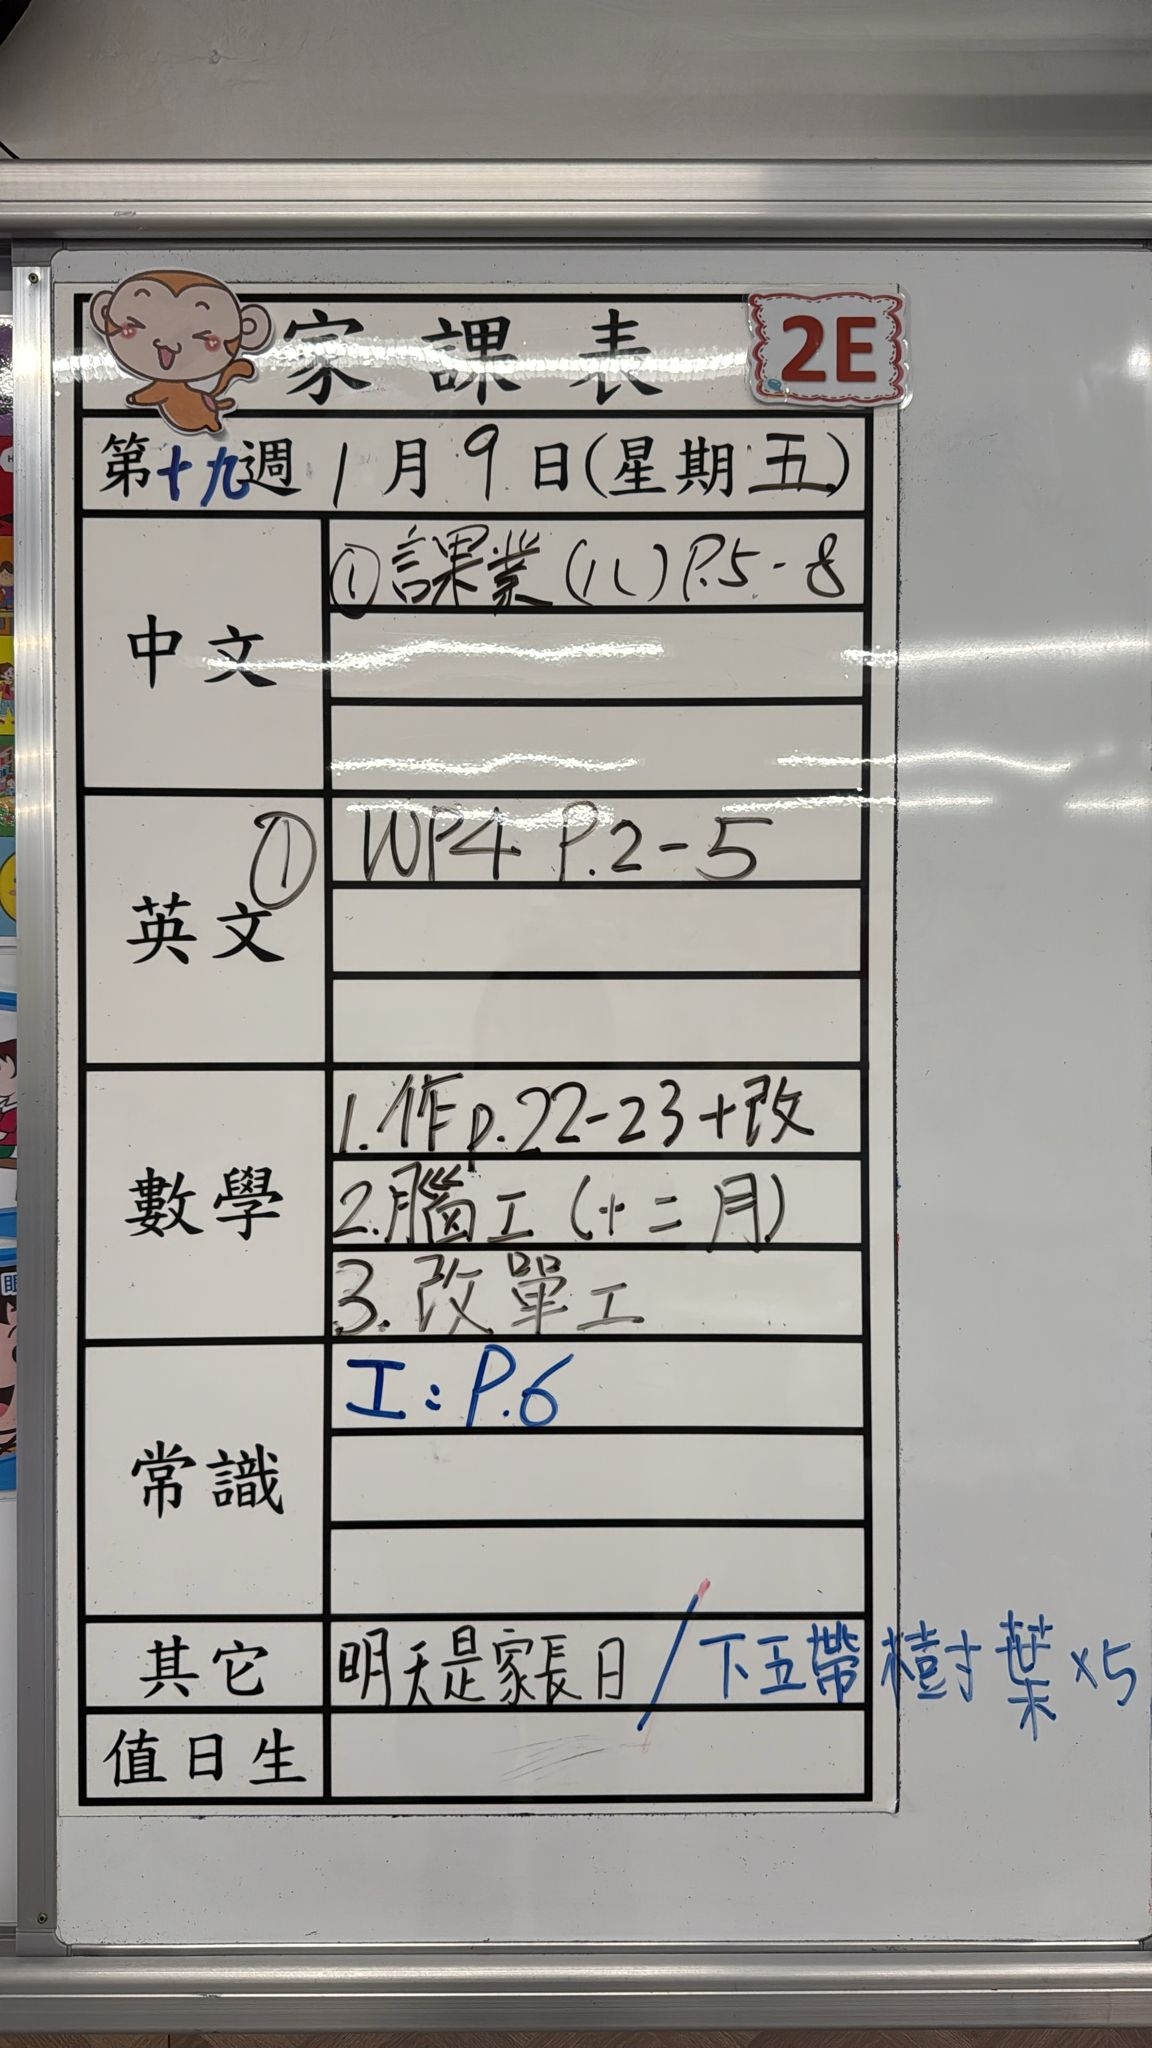 家課表 2E
第十九週 1月9日(星期五)
中文
①課業(八)P.5-8
英文
① WP4 P.2-5
數學
1.作p.22-23+改
2.腦工(十二月)
3.改單工
常識
工:P.6
其它
明天是家長日/下五帶樹葉x5
值日生